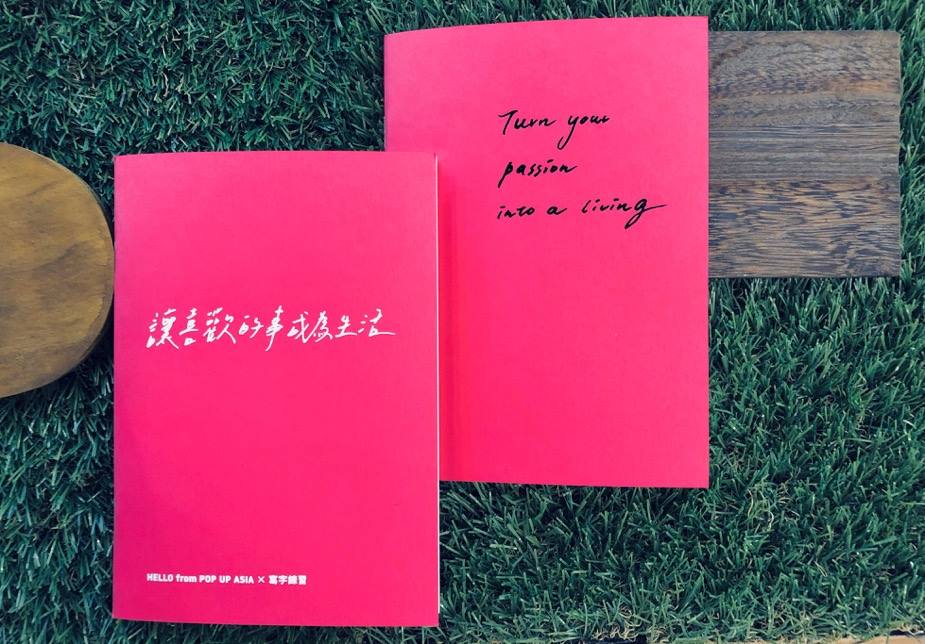 讓喜歡的事成為生活
HELLO from POP UP ASIA × 寫字練習
Turn your
passion
into a living